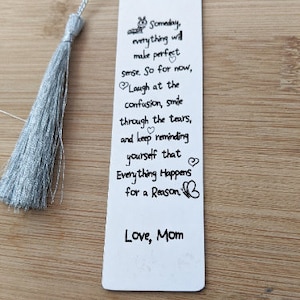 Someday,
everything will
make perfect
sense. So for now,
Laugh at the
confusion, smile
through the tears,
and keep reminding
yourself that
Everything Happens
for a Reason.
Love, Mom